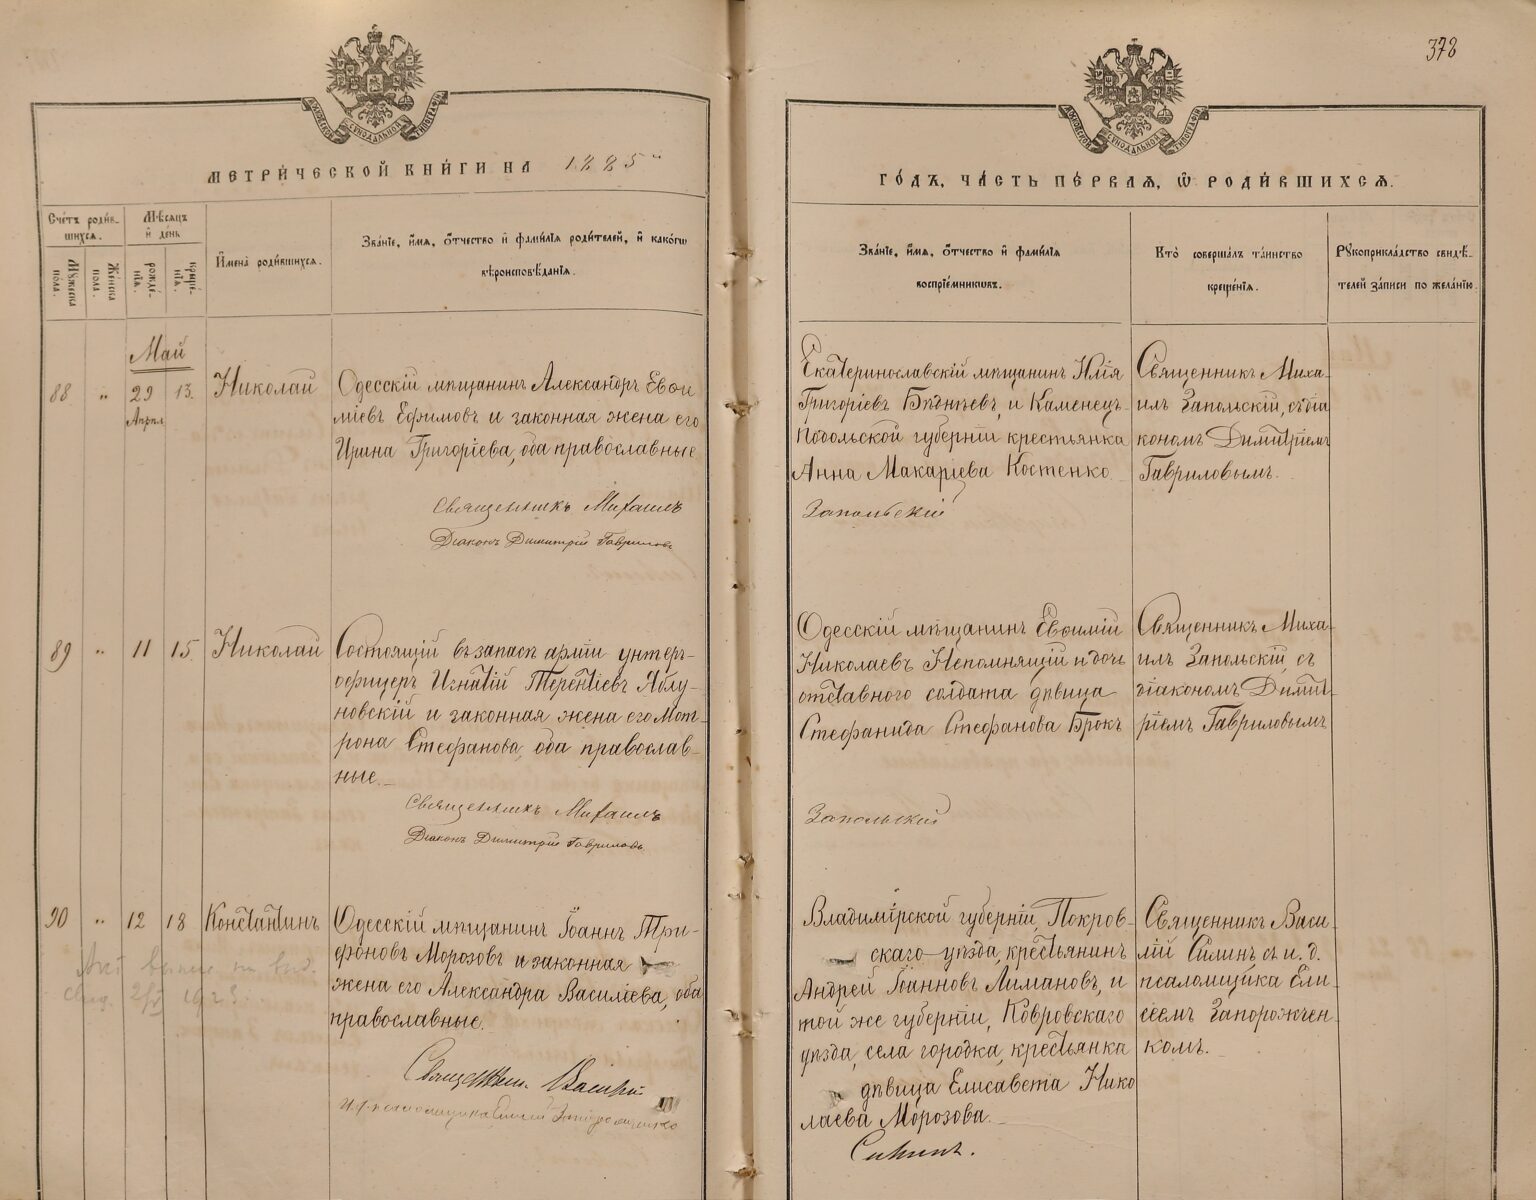 378
МОСКОВСКОЙ СѴНОДАЛЬНОЙ ТИПОГРАФІИ
МОСКОВСКОЙ СѴНОДАЛЬНОЙ ТИПОГРАФІИ
МЕТРИ́ЧЕСКОЙ КНИ́ГИ НА 1885
ГО́ДЪ, ЧА́СТЬ ПЕ́РВАЯ, Ѡ РОДИ́ВШИХСЯ.
Сче́тъ роди́в-
шихся.
Мꙋ́жеска пола.
Же́нска пола.
Мѣ́сяцъ
и҆ де́нь
рожде́-
нїя.
креще́-
нїя.
И҆мена̀ роди́вшихся.
Зва́нїе, и҆́мя, ѻ҆́тчество и҆ фами́лїя роди́телей, и҆ како́гѡ
вѣроисповѣ́данїя.
Зва́нїе, и҆́мя, ѻ҆́тчество и҆ фами́лїя
воспрїе́мникѡвъ.
Кто̀ соверша́лъ та́инство
креще́нїя.
Рꙋкоприкла́дство свидѣ́-
телей за́писи по жела́нїю.
Май
88 " 29 13. Николай
Апрѣл.
Одесскій мѣщанинъ Александръ Евѳи
міевъ Ефимовъ и законная жена его
Ирина Григоріева, оба православные
Священникъ Михаилъ
Діаконъ Димитрій Гавриловъ
Екатеринославскій мѣщанинъ Илія
Григоріевъ и Каменецъ-
Подольской губерніи крестьянка
Анна Макаріева Костенко.
Запольскій
Священникъ Миха-
илъ Запольскій, съ діа
кономъ Димитріемъ
Гавриловымъ.
89 " 11 15. Николай
Состоящій въ запасѣ арміи унтеръ-
офицеръ Игнатій Терентіевъ Яблу-
новскій и законная жена его Мот-
рона Стефанова, оба православ-
ные.
Священникъ Михаилъ
Діаконъ Димитрій Гавриловъ
Одесскій мѣщанинъ Евѳимій
Николаевъ Непомнящій и дочь
отставного солдата дѣвица
Стефанида Стефанова Брокъ
Запольскій
Священникъ Миха-
илъ Запольскій, съ
діакономъ Димит-
ріемъ Гавриловымъ
90 " 12 18 Константинъ
Одесскій мѣщанинъ Іоаннъ Три-
фоновъ Морозовъ и законная
жена его Александра Василіева, оба
православные.
Священн. Василій
И. д. псаломщика Елисей Запорожченко
Владимірской губерніи, Покров-
скаго уѣзда, крестьянинъ
Андрей Іоанновъ Лимановъ, и
той же губерніи, Ковровскаго
уѣзда, села городка, крестьянка
дѣвица Елисавета Нико
лаева Морозова.
Силинъ.
Священникъ Васи-
лій Силинъ съ и. д.
псаломщика Ели-
сеемъ Запорожчен-
комъ.